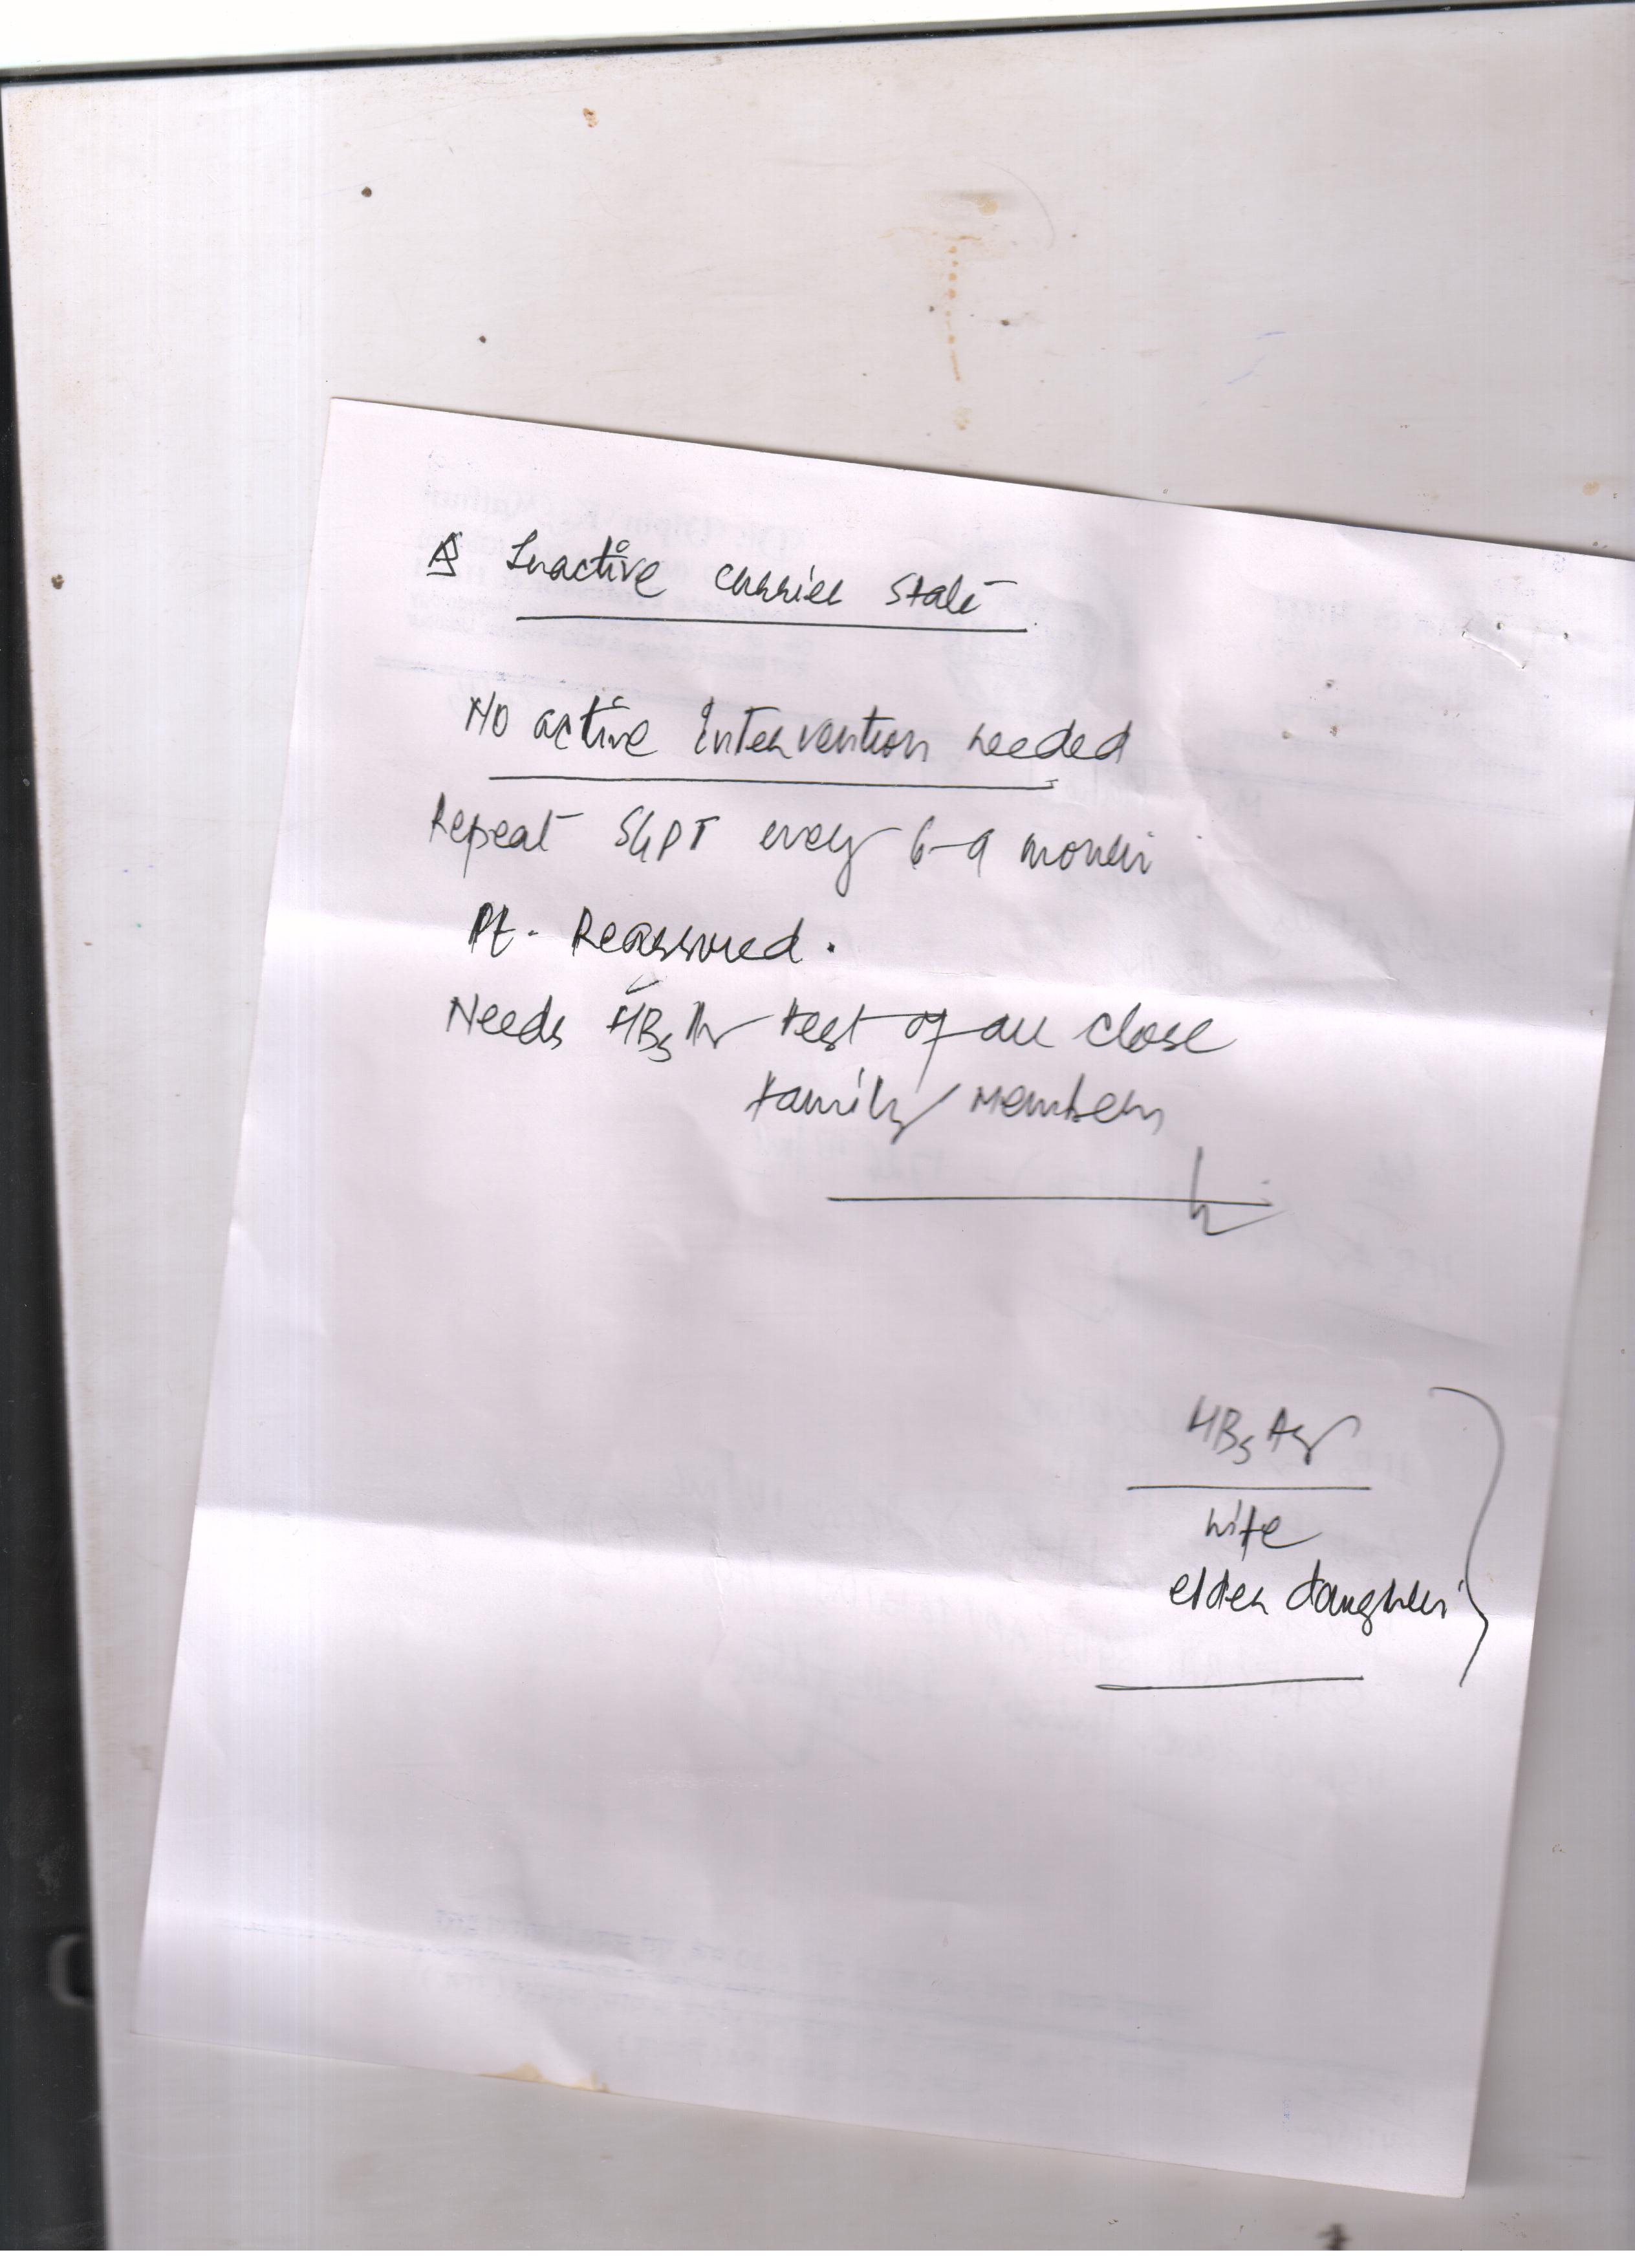 Inactive carrier state
No active intervention needed
Repeat SGPT every 6-9 months
Pt. Reassured.
Needs HBsAg test of all close
family members
HBsAg
wife
elder daughter